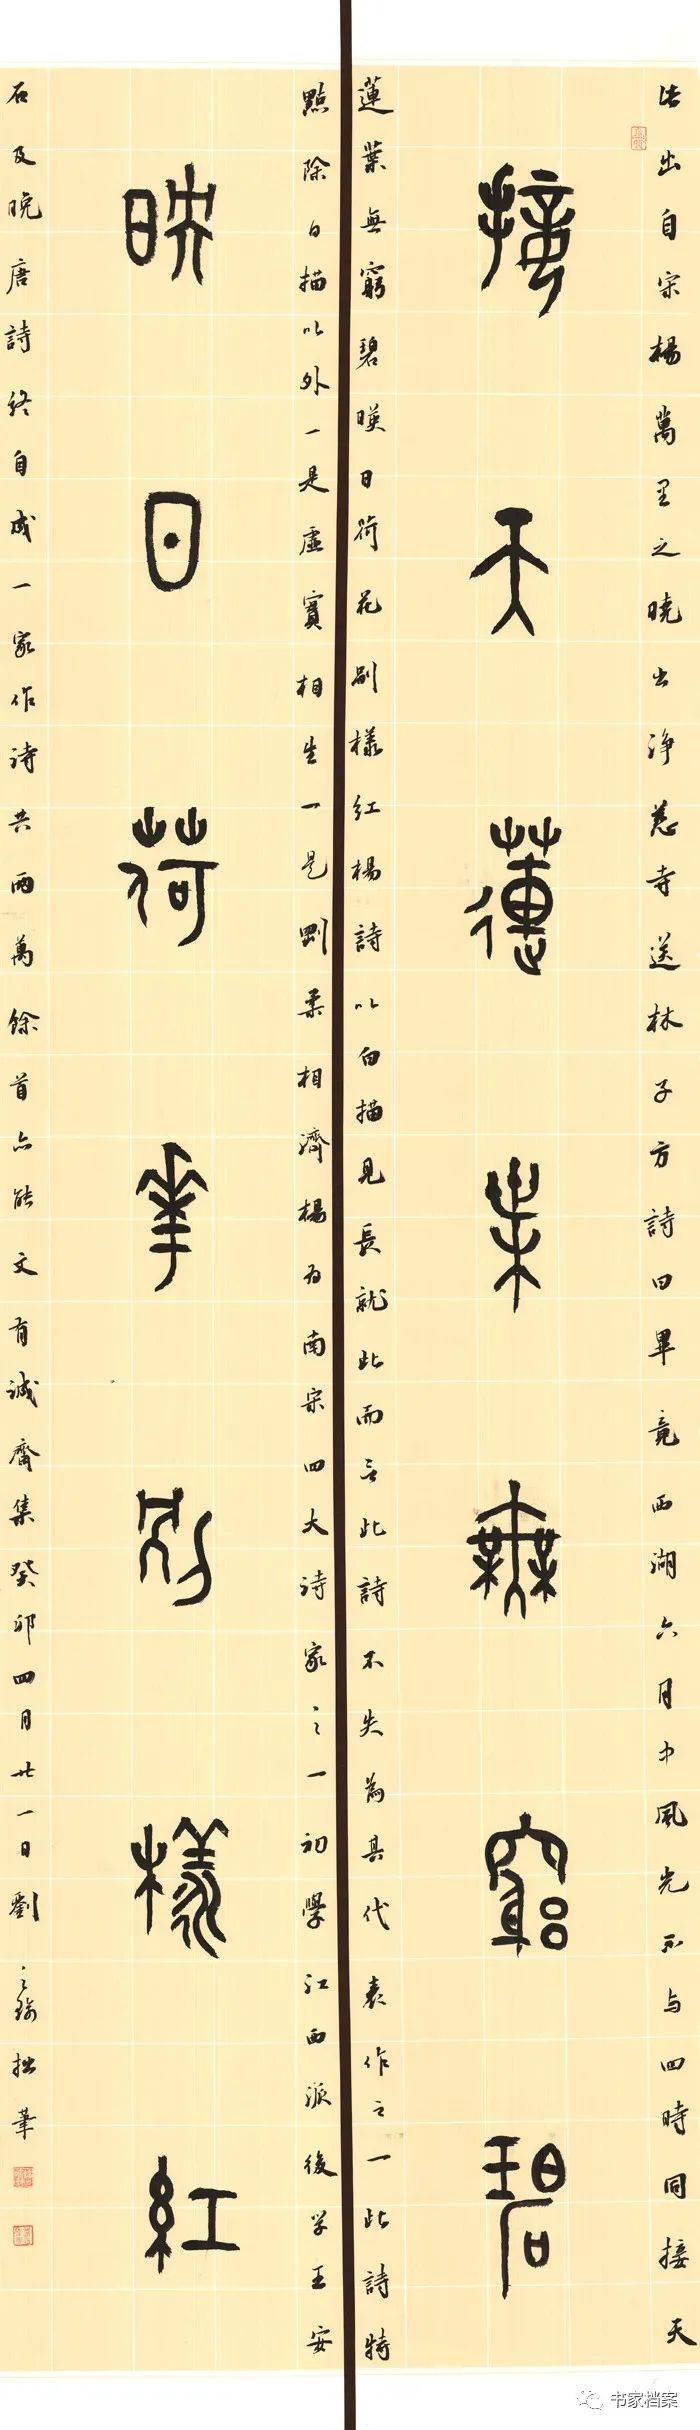 语出自宋楊萬里之曉出淨慈寺送林子方詩曰畢竟西湖六月中風光不与四時同接天
接天蓮葉無窮碧
蓮葉無窮碧暎日荷花別樣紅楊詩以白描見長就此而言此詩不失為其代表作之一此詩特
點除白描以外一是虛實相生一是剛柔相濟楊为南宋四大诗家之一初學江西派後学王安
映日荷華別樣紅
石及晚唐詩终自成一家作诗共兩萬餘首亦能文有诚齋集癸卯四月廿一日劉拙筆
书家档案